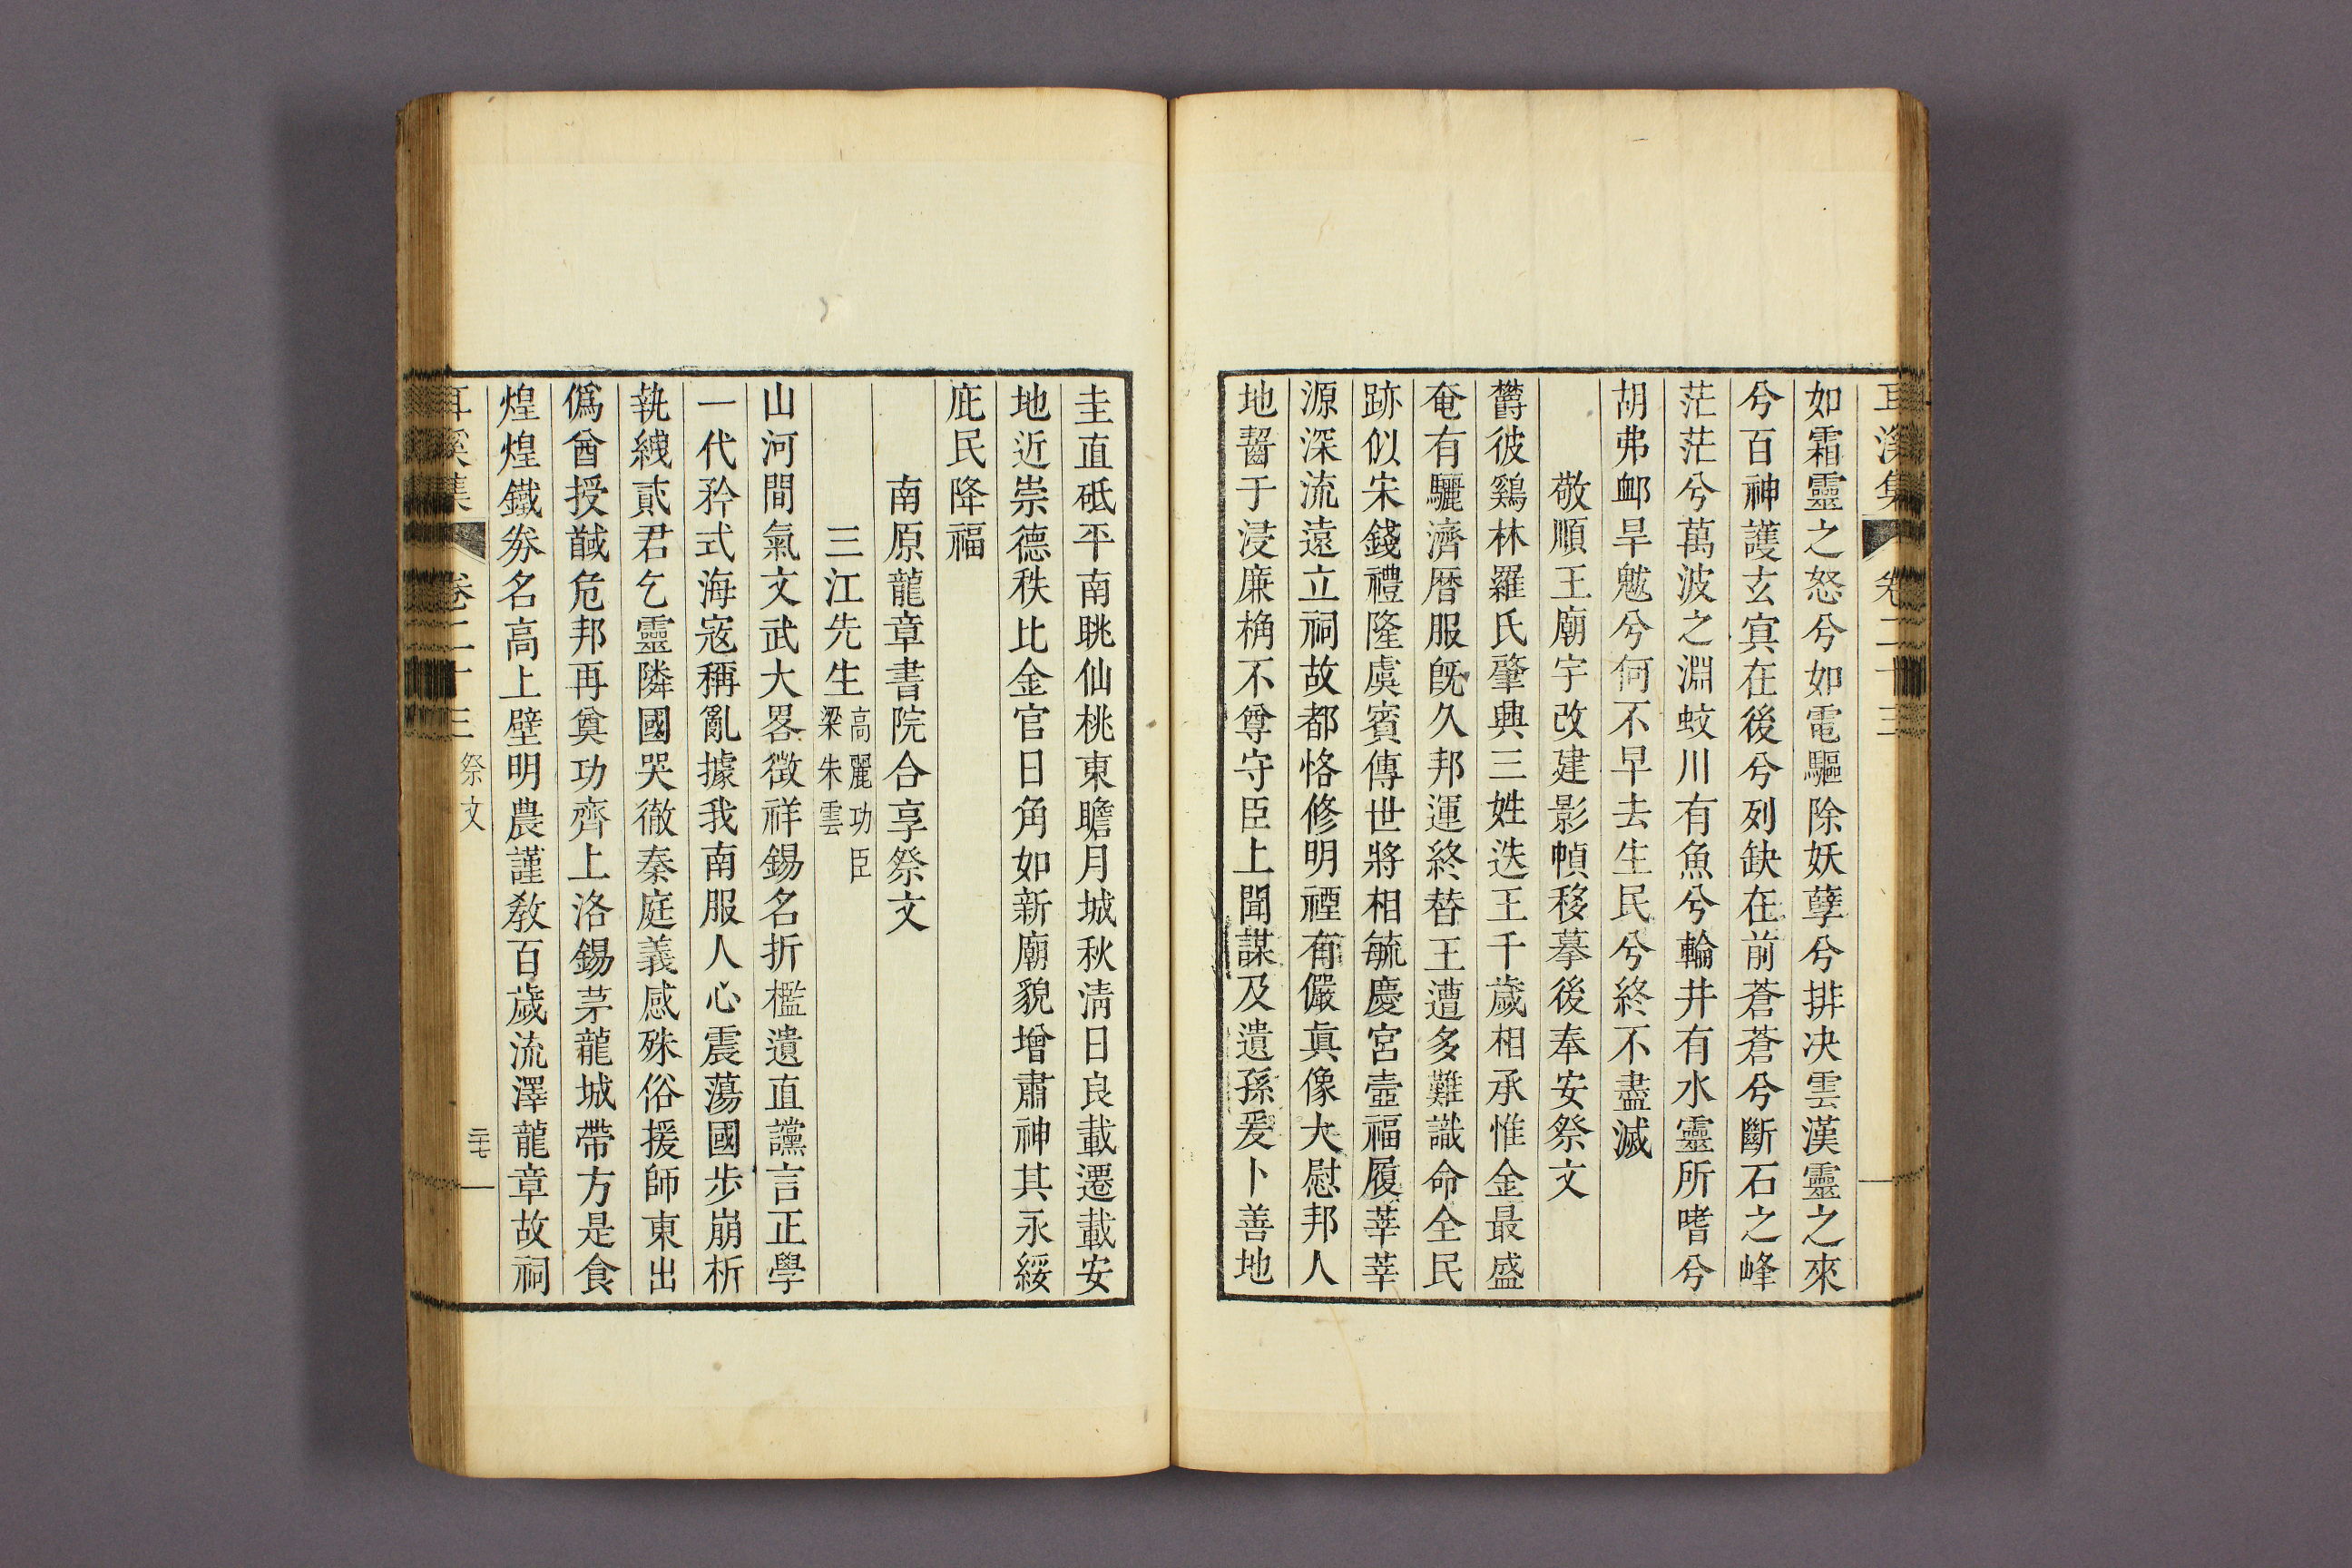 耳溪集 卷二十三
如霜靈之怒兮如電驅除妖孽兮排决雲漢靈之來
兮百神護玄㝠在後兮列缺在前蒼蒼兮斷石之峰
茫茫兮萬波之淵蛟川有魚兮輪井有水靈所嗜兮
胡弗䘏旱魃兮何不早去生民兮終不盡滅
敬順王廟宇改建影幀移摹後奉安祭文
欝彼鷄林羅氏肇興三姓迭王千歲相承惟金最盛
奄有驪濟曆服旣久邦運終替王遭多難識命全民
跡似宋錢禮隆虞賓傳世將相毓慶宮壼福履莘莘
源深流遠立祠故都恪修明禋有儼眞像大慰邦人
地嚚于浸廉桷不尊守臣上聞謀及遺孫爰卜善地
圭直砥平南眺仙桃東瞻月城秋淸日良載遷載安
地近崇德秩比金官日角如新廟貌增肅神其永綏
庇民降福
南原龍章書院合享祭文
三江先生 高麗功臣
梁朱雲
山河間氣文武大畧徵祥錫名折檻遺直讜言正學
一代矜式海寇稱亂據我南服人心震蕩國步崩析
執綫貳君乞靈隣國哭徹秦庭義感殊俗援師東出
僞酋授馘危邦再奠功齊上洛錫茅龍城帶方是食
煌煌鐵券名高上壁明農謹敎百歲流澤龍章故祠
耳溪集 卷二十三 祭文 二十七